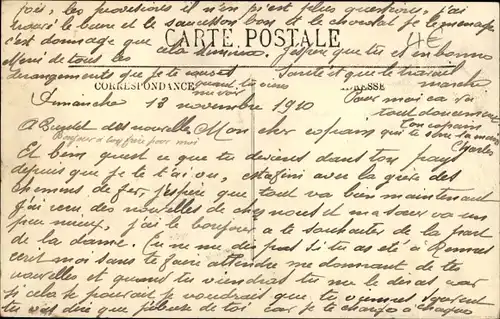 fois, les provisions il n'en n'est plus question, j'ai
trouvé le beurre et le saucisson bon et le chocolat je le ménage
c'est dommage que cela diminue, j'espère que tu es en bonne
Merci de tous les
dérangements que je te
4E
CARTE POSTALE
CORRESPONDANCE
ADRESSE
santé et que le travail
marche
Dimanche 13 novembre 1910
Pour moi ça va
tout doucement
ton copain
qui te serre la main
Charles
A bientôt des nouvelles
Bonjour à
pour moi
Mon cher copain
Et bien quest ce que tu deviens dans ton pays
depuis que je t'ai vu, avec la grève des
chemins de fer, j'espère que tout va bien maintenant
j'ai reçu des nouvelles de chez nous et ma sœur va un
peu mieux, j'ai le bonjour à te souhaiter de la part
de la dame. Tu ne me dis pas si tu as été à Rennes
écrit moi sans te faire attendre me donnant de tes
nouvelles et quand tu viendras tu me le diras car
si cela se pourrait je voudrais que tu viennes
tu vas dire que de toi car je te charge à chaque